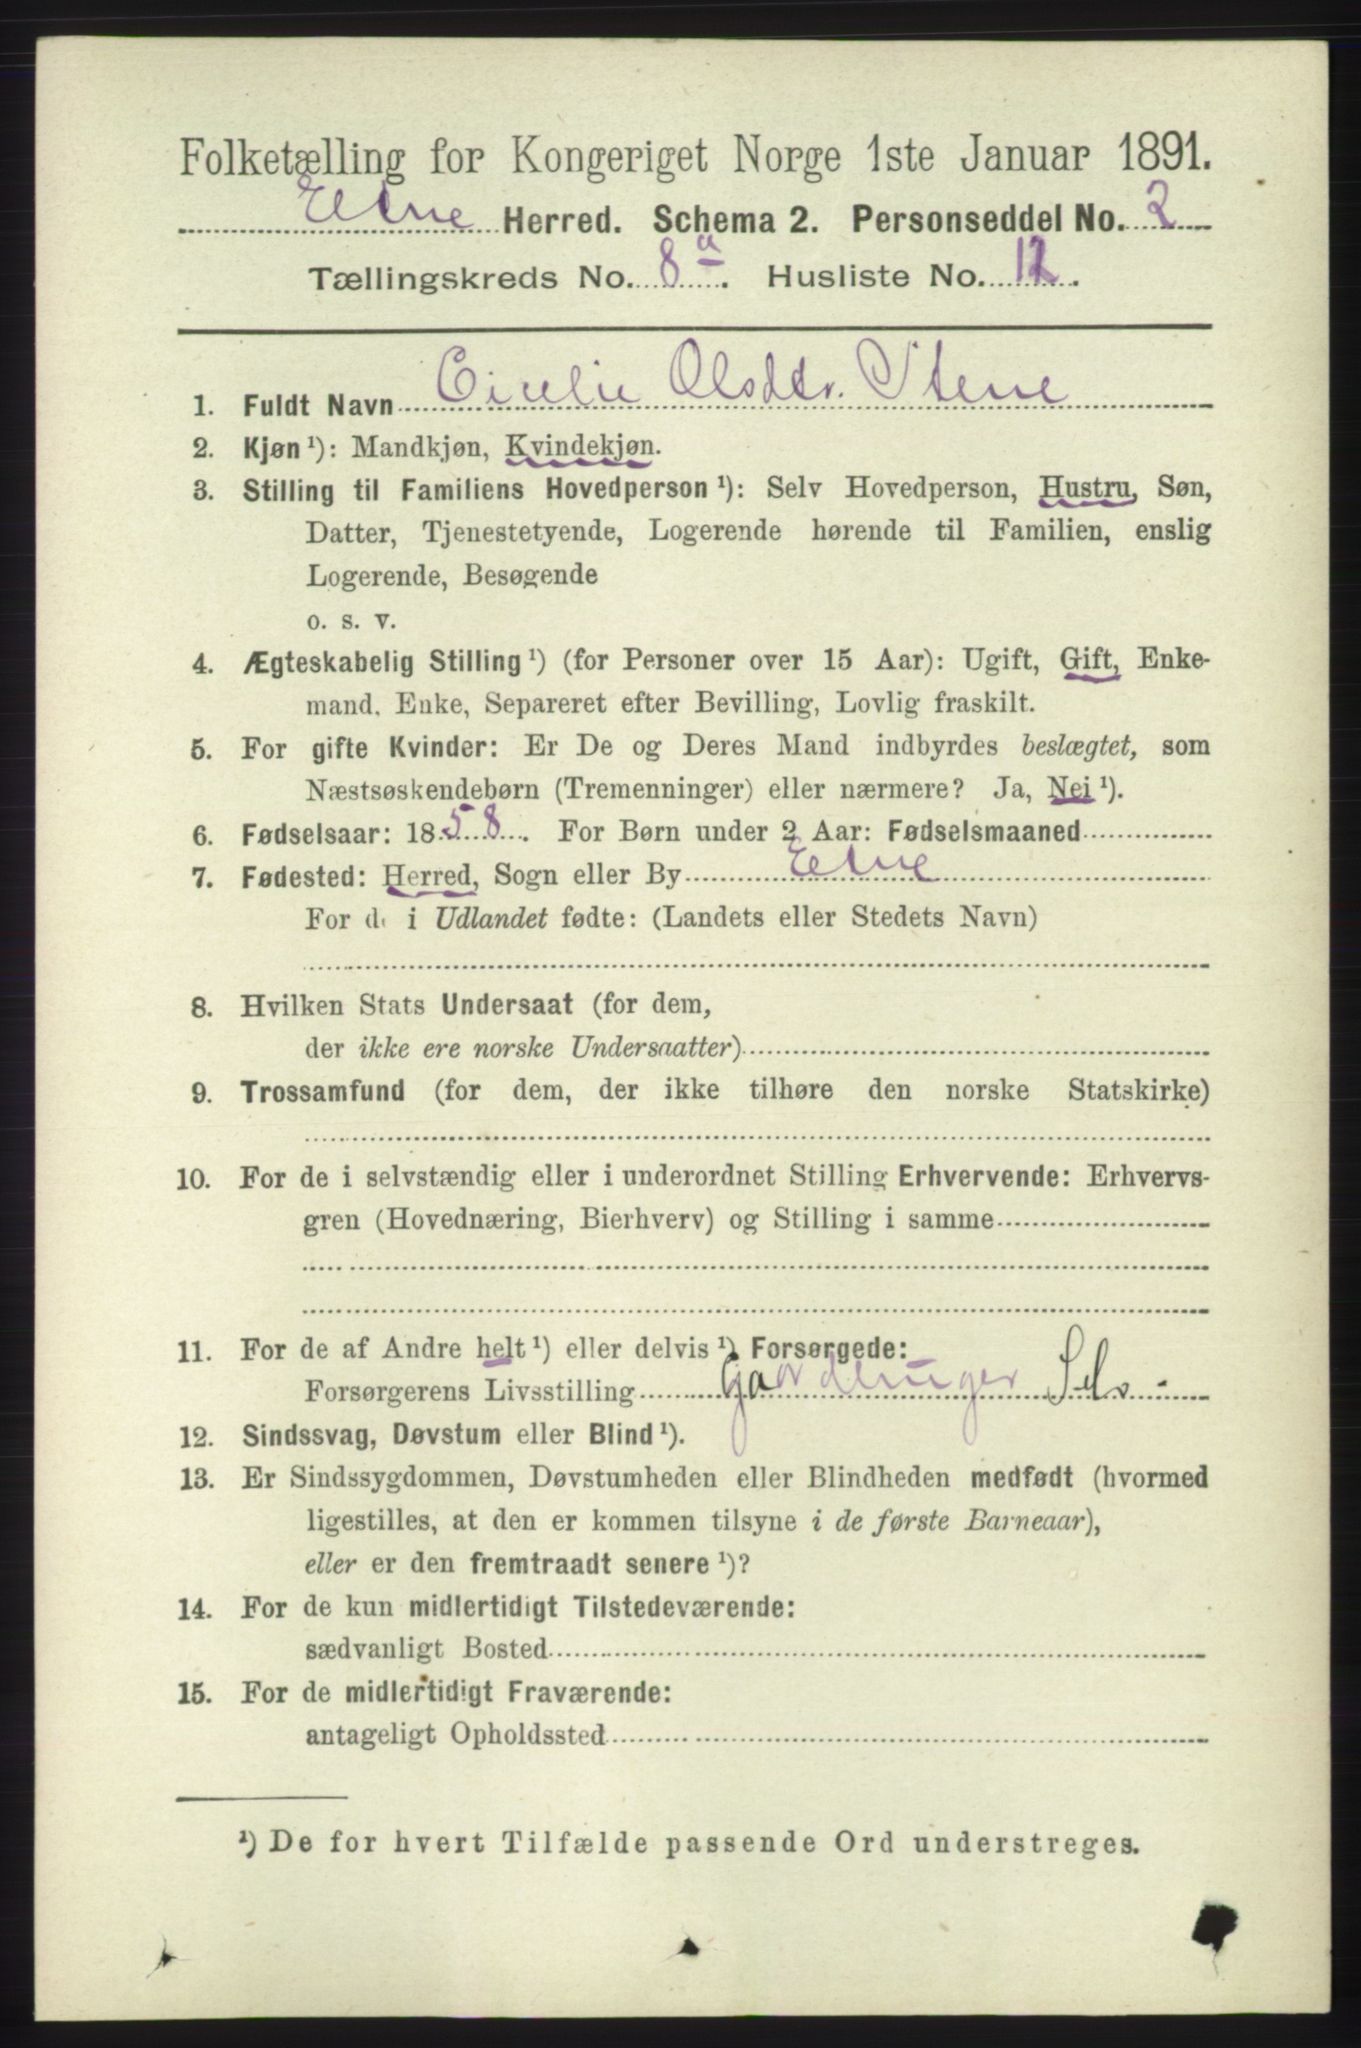 Folketælling for Kongeriget Norge 1ste Januar 1891.
Etne Herred. Schema 2. Personseddel No. 2
Tællingskreds No. 8a. Husliste No. 12.
1. Fuldt Navn Cicelie Olsdtr. Stene
2. Kjøn ¹): Mandkjøn, Kvindekjøn.
3. Stilling til Familiens Hovedperson ¹): Selv Hovedperson, Hustru, Søn,
Datter, Tjenestetyende, Logerende hørende til Familien, enslig
Logerende, Besøgende
o. s. v.
4. Ægteskabelig Stilling ¹) (for Personer over 15 Aar): Ugift, Gift, Enke-
mand, Enke, Separeret efter Bevilling, Lovlig fraskilt.
5. For gifte Kvinder: Er De og Deres Mand indbyrdes beslægtet, som
Næstsøskendebørn (Tremenninger) eller nærmere? Ja, Nei ¹).
6. Fødselsaar: 1858. For Børn under 2 Aar: Fødselsmaaned
7. Fødested: Herred, Sogn eller By Etne
For de i Udlandet fødte: (Landets eller Stedets Navn)
8. Hvilken Stats Undersaat (for dem,
der ikke ere norske Undersaatter)
9. Trossamfund (for dem, der ikke tilhøre den norske Statskirke)
10. For de i selvstændig eller i underordnet Stilling Erhvervende: Erhvervs-
gren (Hovednæring, Bierhverv) og Stilling i samme
11. For de af Andre helt ¹) eller delvis ¹) Forsørgede:
Forsørgerens Livsstilling Gaardbruger Selv -
12. Sindssvag, Døvstum eller Blind ¹).
13. Er Sindssygdommen, Døvstumheden eller Blindheden medfødt (hvormed
ligestilles, at den er kommen tilsyne i de første Barneaar),
eller er den fremtraadt senere ¹)?
14. For de kun midlertidigt Tilstedeværende:
sædvanligt Bosted
15. For de midlertidigt Fraværende:
antageligt Opholdssted
¹) De for hvert Tilfælde passende Ord understreges.